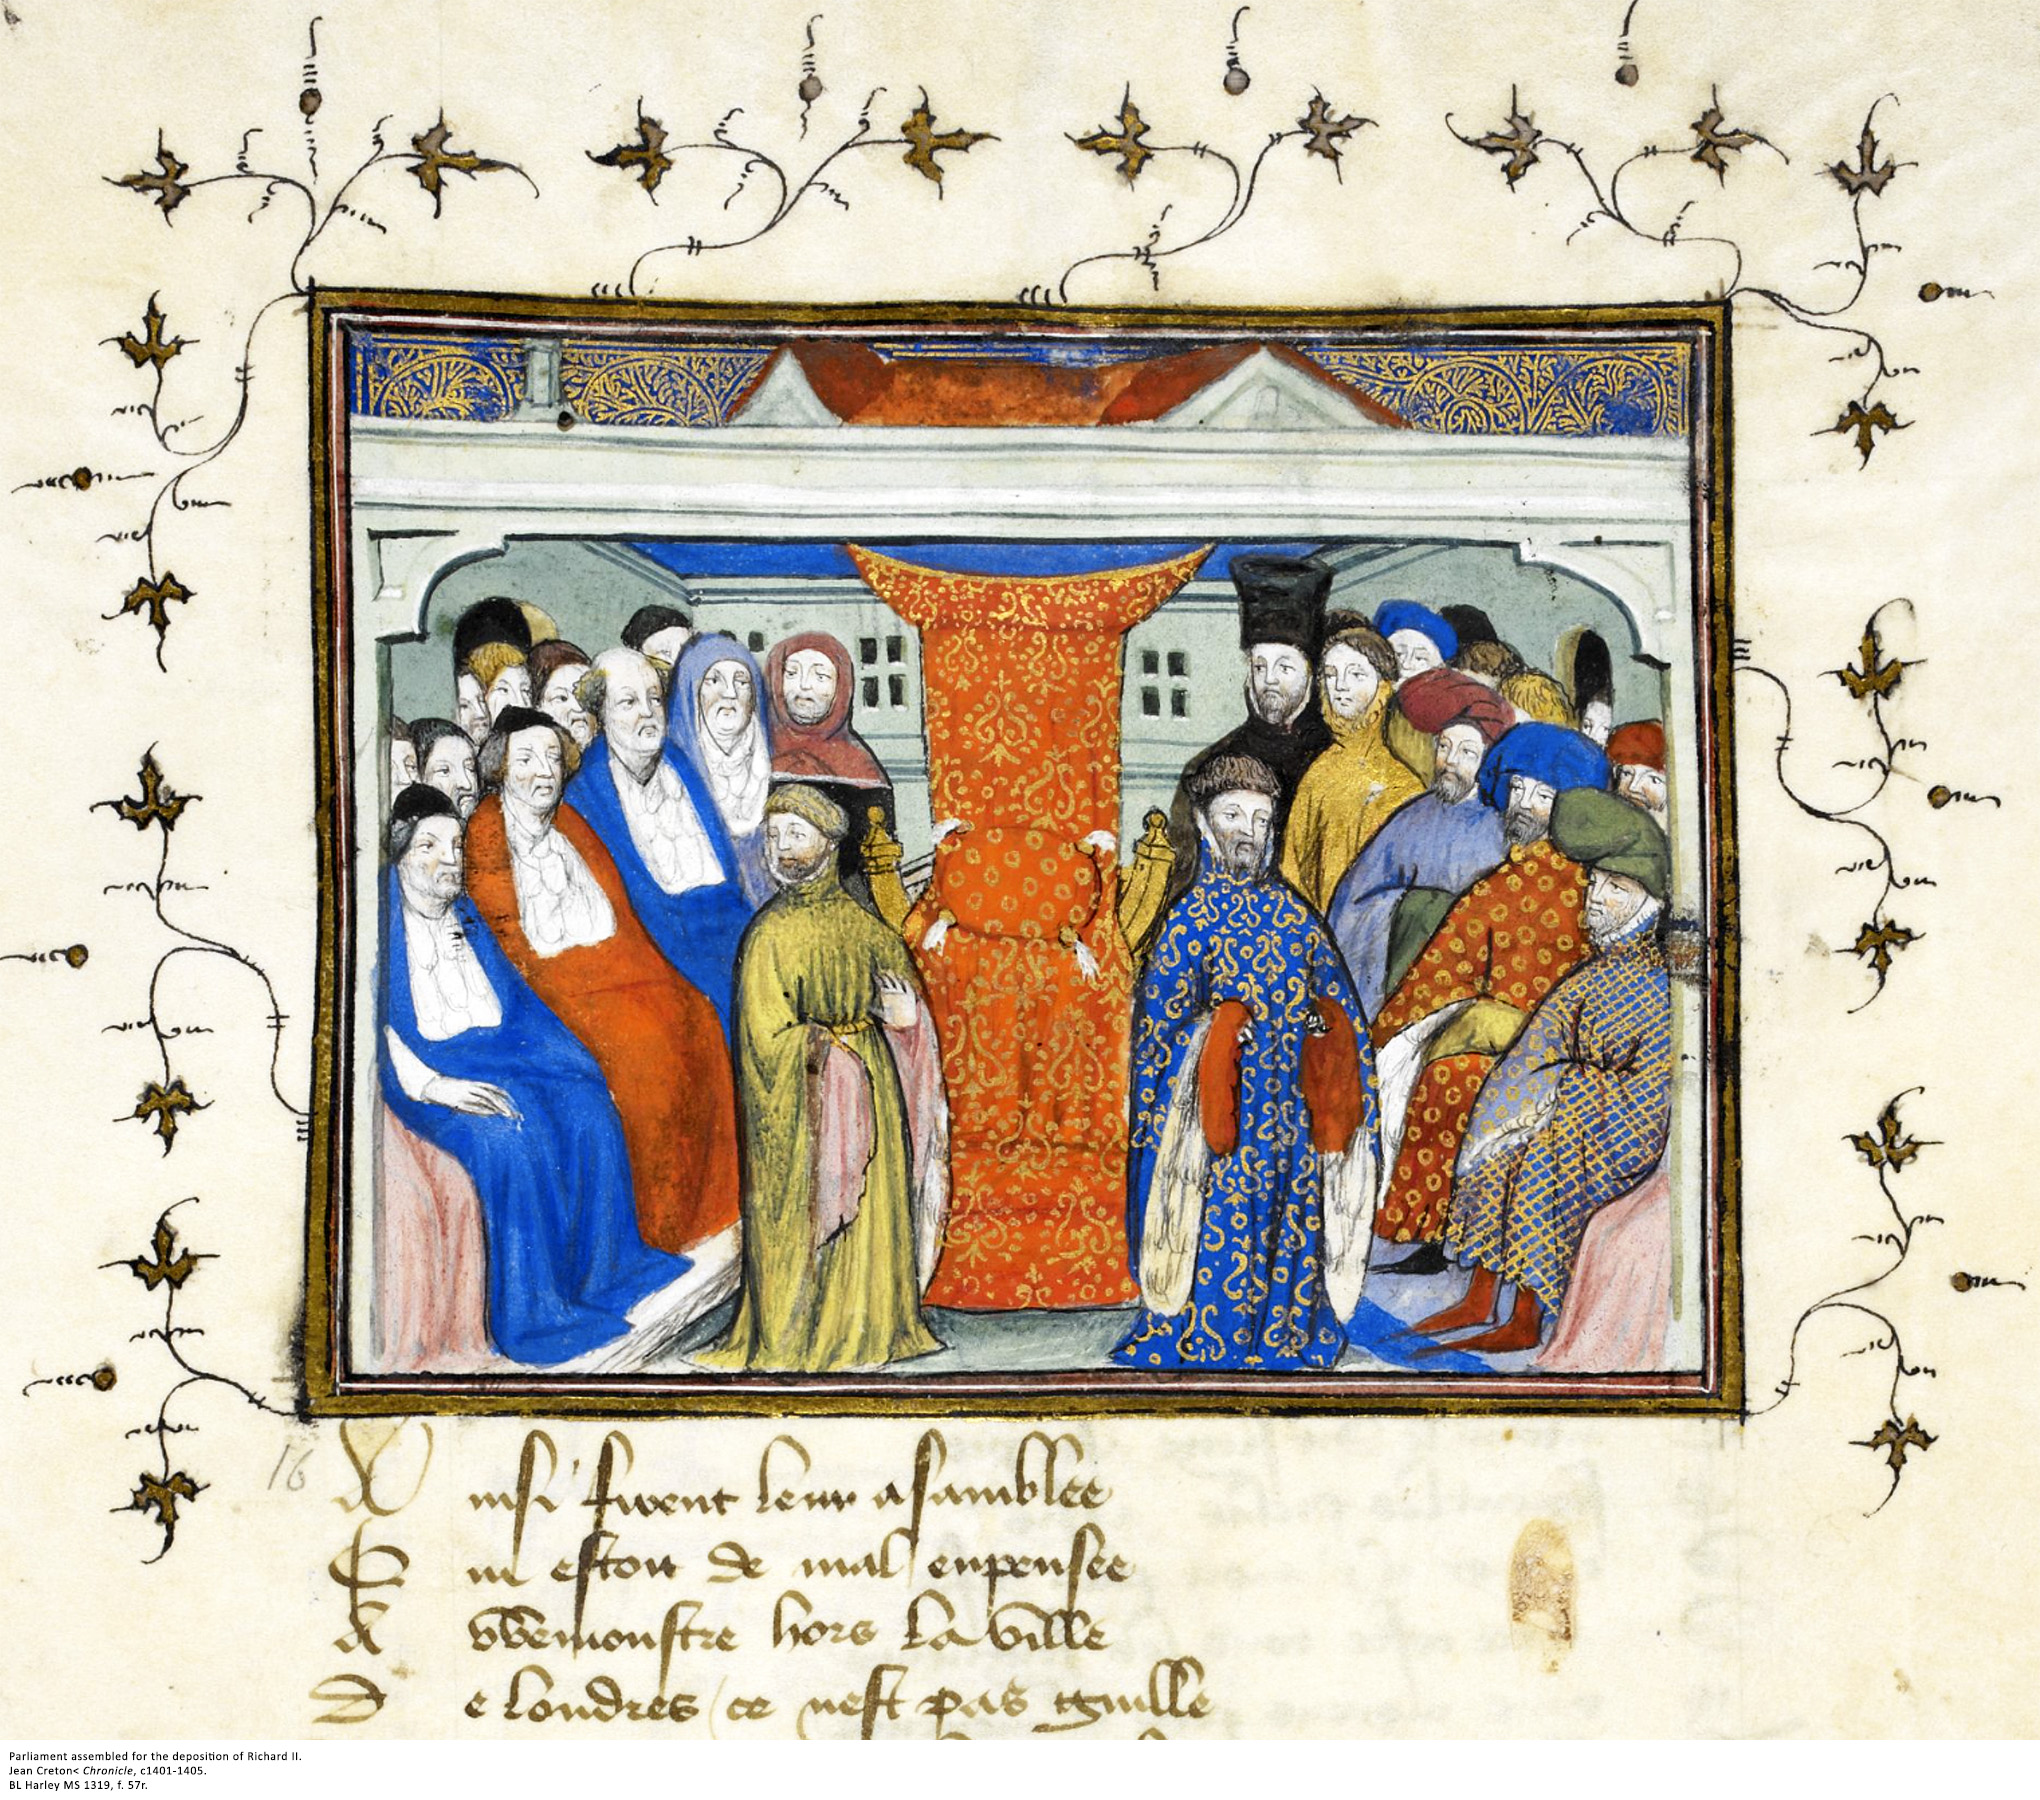 16
A insi firent leur asamblee
Q ui estoit de mal enpensee
A Wemonstre hors la ville
D e Londres ce nest pas guille
Parliament assembled for the deposition of Richard II.
Jean Creton< Chronicle, c1401-1405.
BL Harley MS 1319, f. 57r.